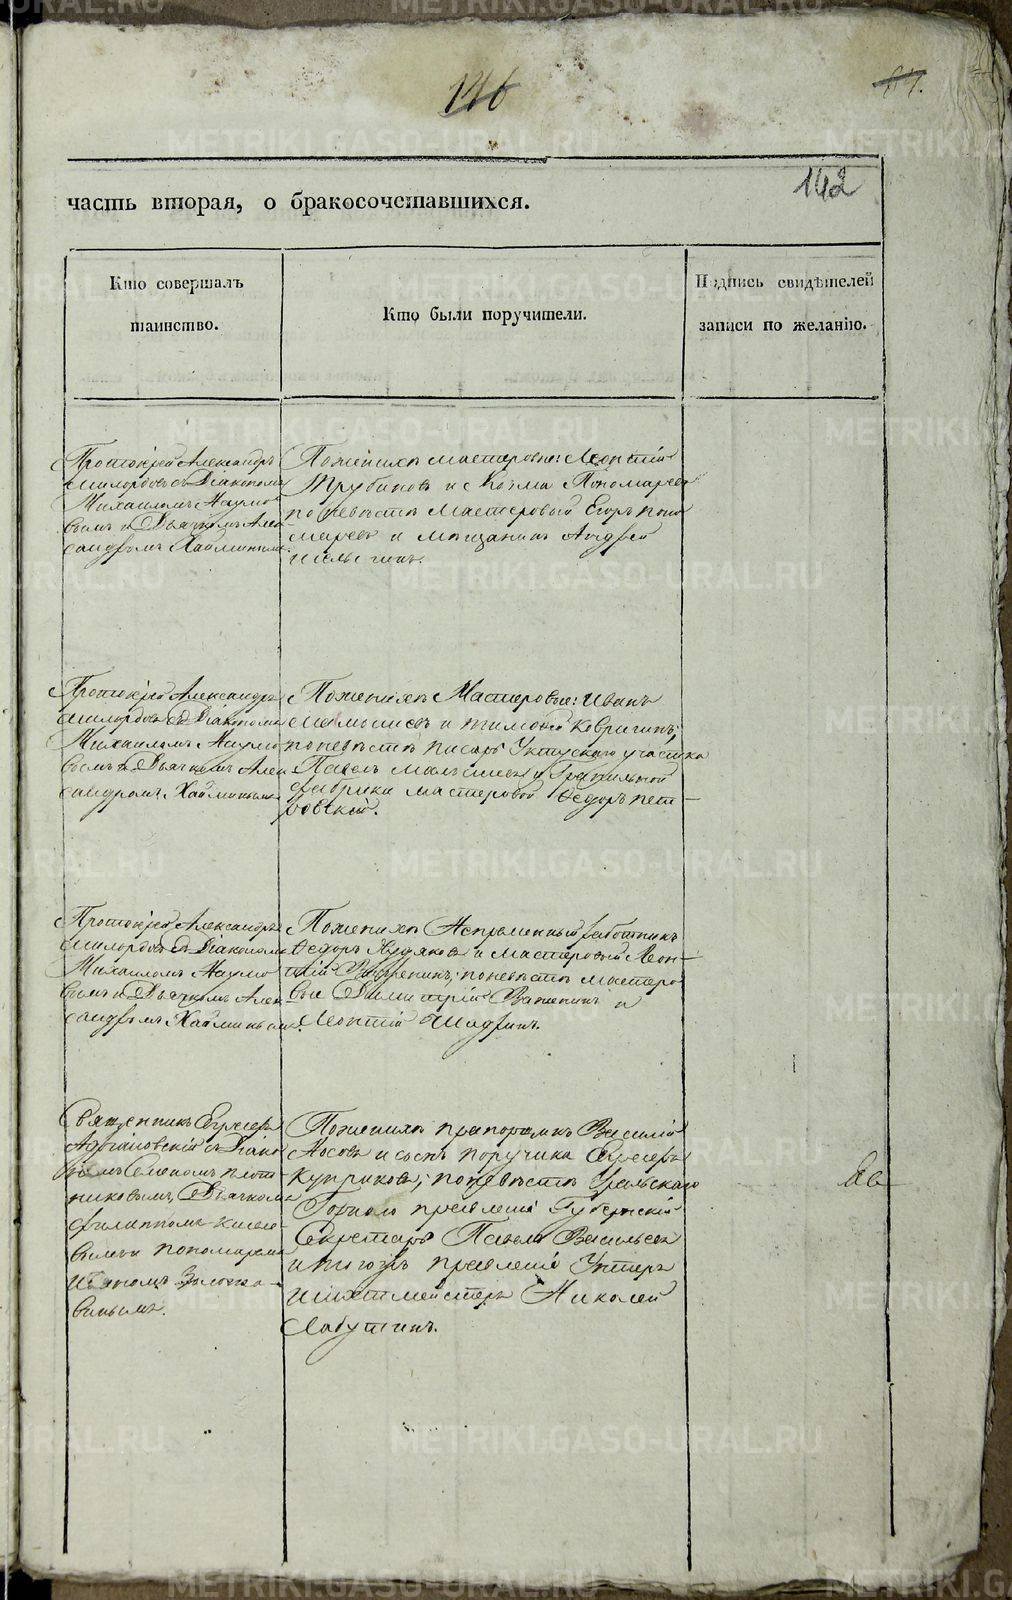 146
87.
142
часть вторая, о бракосочетавшихся.
Кто совершалъ
таинство.
Кто были поручители.
Подпись свидѣтелей
записи по желанію.
Протоіерей Александръ
Милордовъ съ Діакономъ
Михаиломъ Наумо
вымъ и Дьячкомъ Алек
сандромъ Хайминымъ
По женихѣ мастеровые: Леонтій
Трубинов и Козма Пономарев
по невѣстѣ Мастеровый Егоръ Поно
марев и мѣщанинъ Андрей
Протоіерей Александръ
Милордовъ съ Діакономъ
Михаиломъ Наумо
вымъ и Дьячкомъ Алек
сандромъ Хайминымъ
По женихѣ Мастеровые: Иванъ
и Тимофей Ковригинъ;
по невѣстѣ писарь Уктускаго участка
Павелъ и Гранильной
фабрики мастеровой Ѳедоръ Пет
ровскій.
Протоіерей Александръ
Милордовъ съ Діакономъ
Михаиломъ Наумо
вымъ и Дьячкомъ Алек
сандромъ Хайминымъ.
По женихѣ Непремѣнный работникъ
Ѳедоръ Худяков и мастеровой Леон
тій по невѣстѣ мастеро
вые Димитрій Важенинъ и
Леонтій Шадринъ.
Священникъ
съ Діако
номъ Семеномъ Плот
никовымъ, Дьячкомъ
Филиппомъ Кисе
левымъ и пономаремъ
Иваномъ
По женихѣ прапорщикъ Василій
Носовъ и сынъ поручика
по невѣстѣ Уральскаго
Горнаго правленія Губернскій
Секретарь Павелъ Васильев
и того жъ правленія Унтеръ
шихтмейстеръ Николай
Лабутинъ.
METRIKI.GASO-URAL.RU